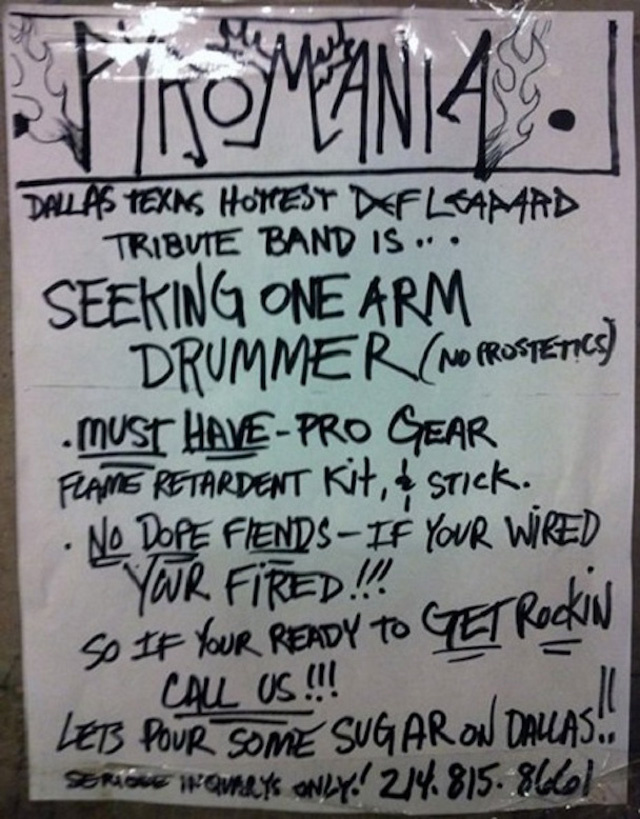 PYROMANIA
DALLAS TEXAS HOTTEST DEF LEAPARD
TRIBUTE BAND IS...
SEEKING ONE ARM
DRUMMER (NO PROSTETICS)
. MUST HAVE - PRO GEAR
FLAME RETARDENT Kit, & STICK.
. NO DOPE FIENDS - IF YOUR WIRED
YOUR FIRED!!!
SO IF YOUR READY TO GET ROCKIN
CALL US!!!
LETS POUR SOME SUGAR ON DALLAS!!
SERIOUS INQUARYS ONLY! 214.815.8661